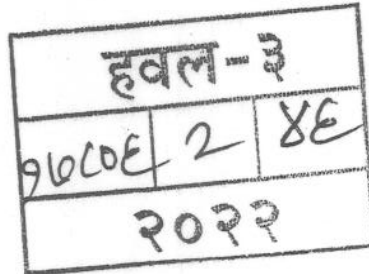 हवल-३
१७८०६ 2 ४६
२०२२